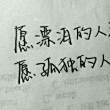 愿漂泊的人
愿孤独的人